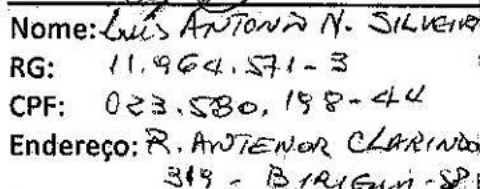 Nome: Luis ANTONIO N. SILVEIRA
RG: 11.964.571-3
CPF: 023.580.198-44
Endereço: R. ANTENOR CLARINDO
319 - BIRIGUI-SP